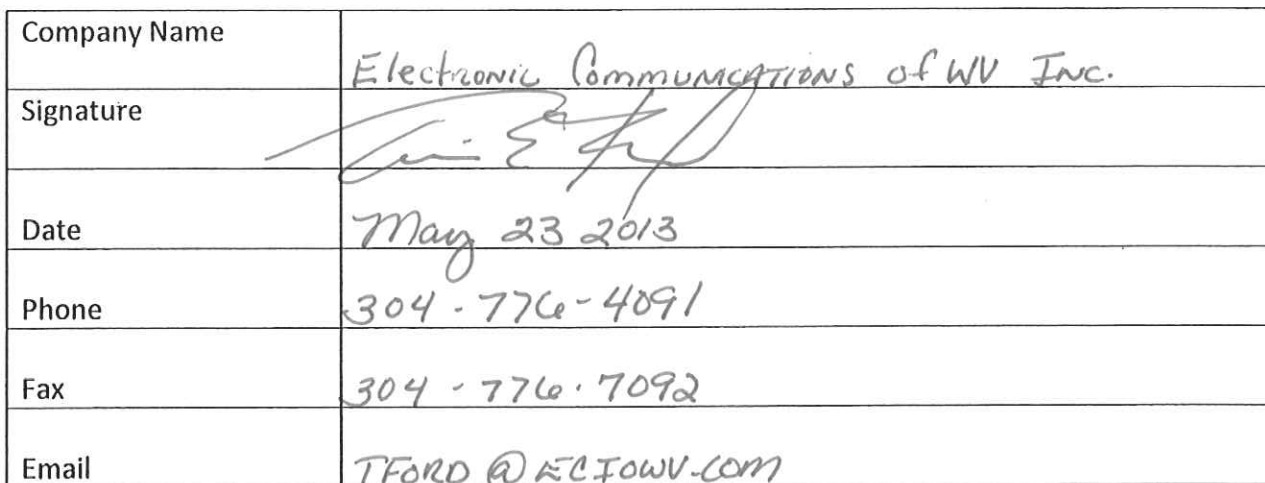 Company Name
Electronic Communications of WV Inc.
Signature
Date
May 23 2013
Phone
304-776-4091
Fax
304-776-7092
Email
TFORD@ECIOWV.COM